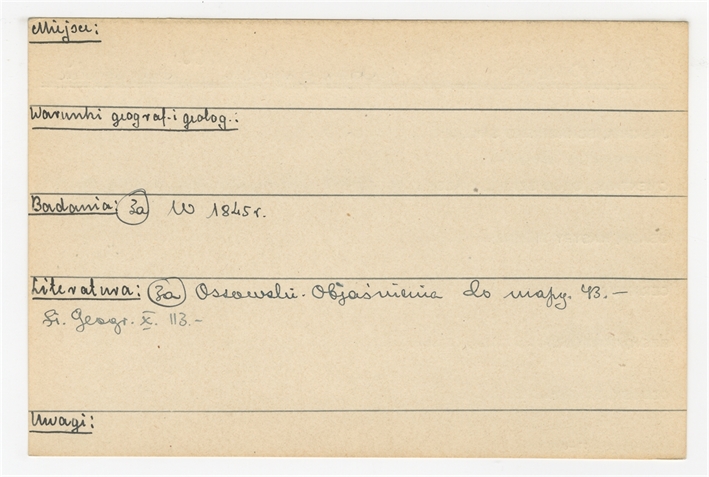 Miejsce:
Warunki geograf. i geolog.:
Badania: 3a W 1845 r.
Literatura: 3a Ossowski. Objaśnienia do mapy. 43.-
Sł. Geogr. X. 113.-
Uwagi: